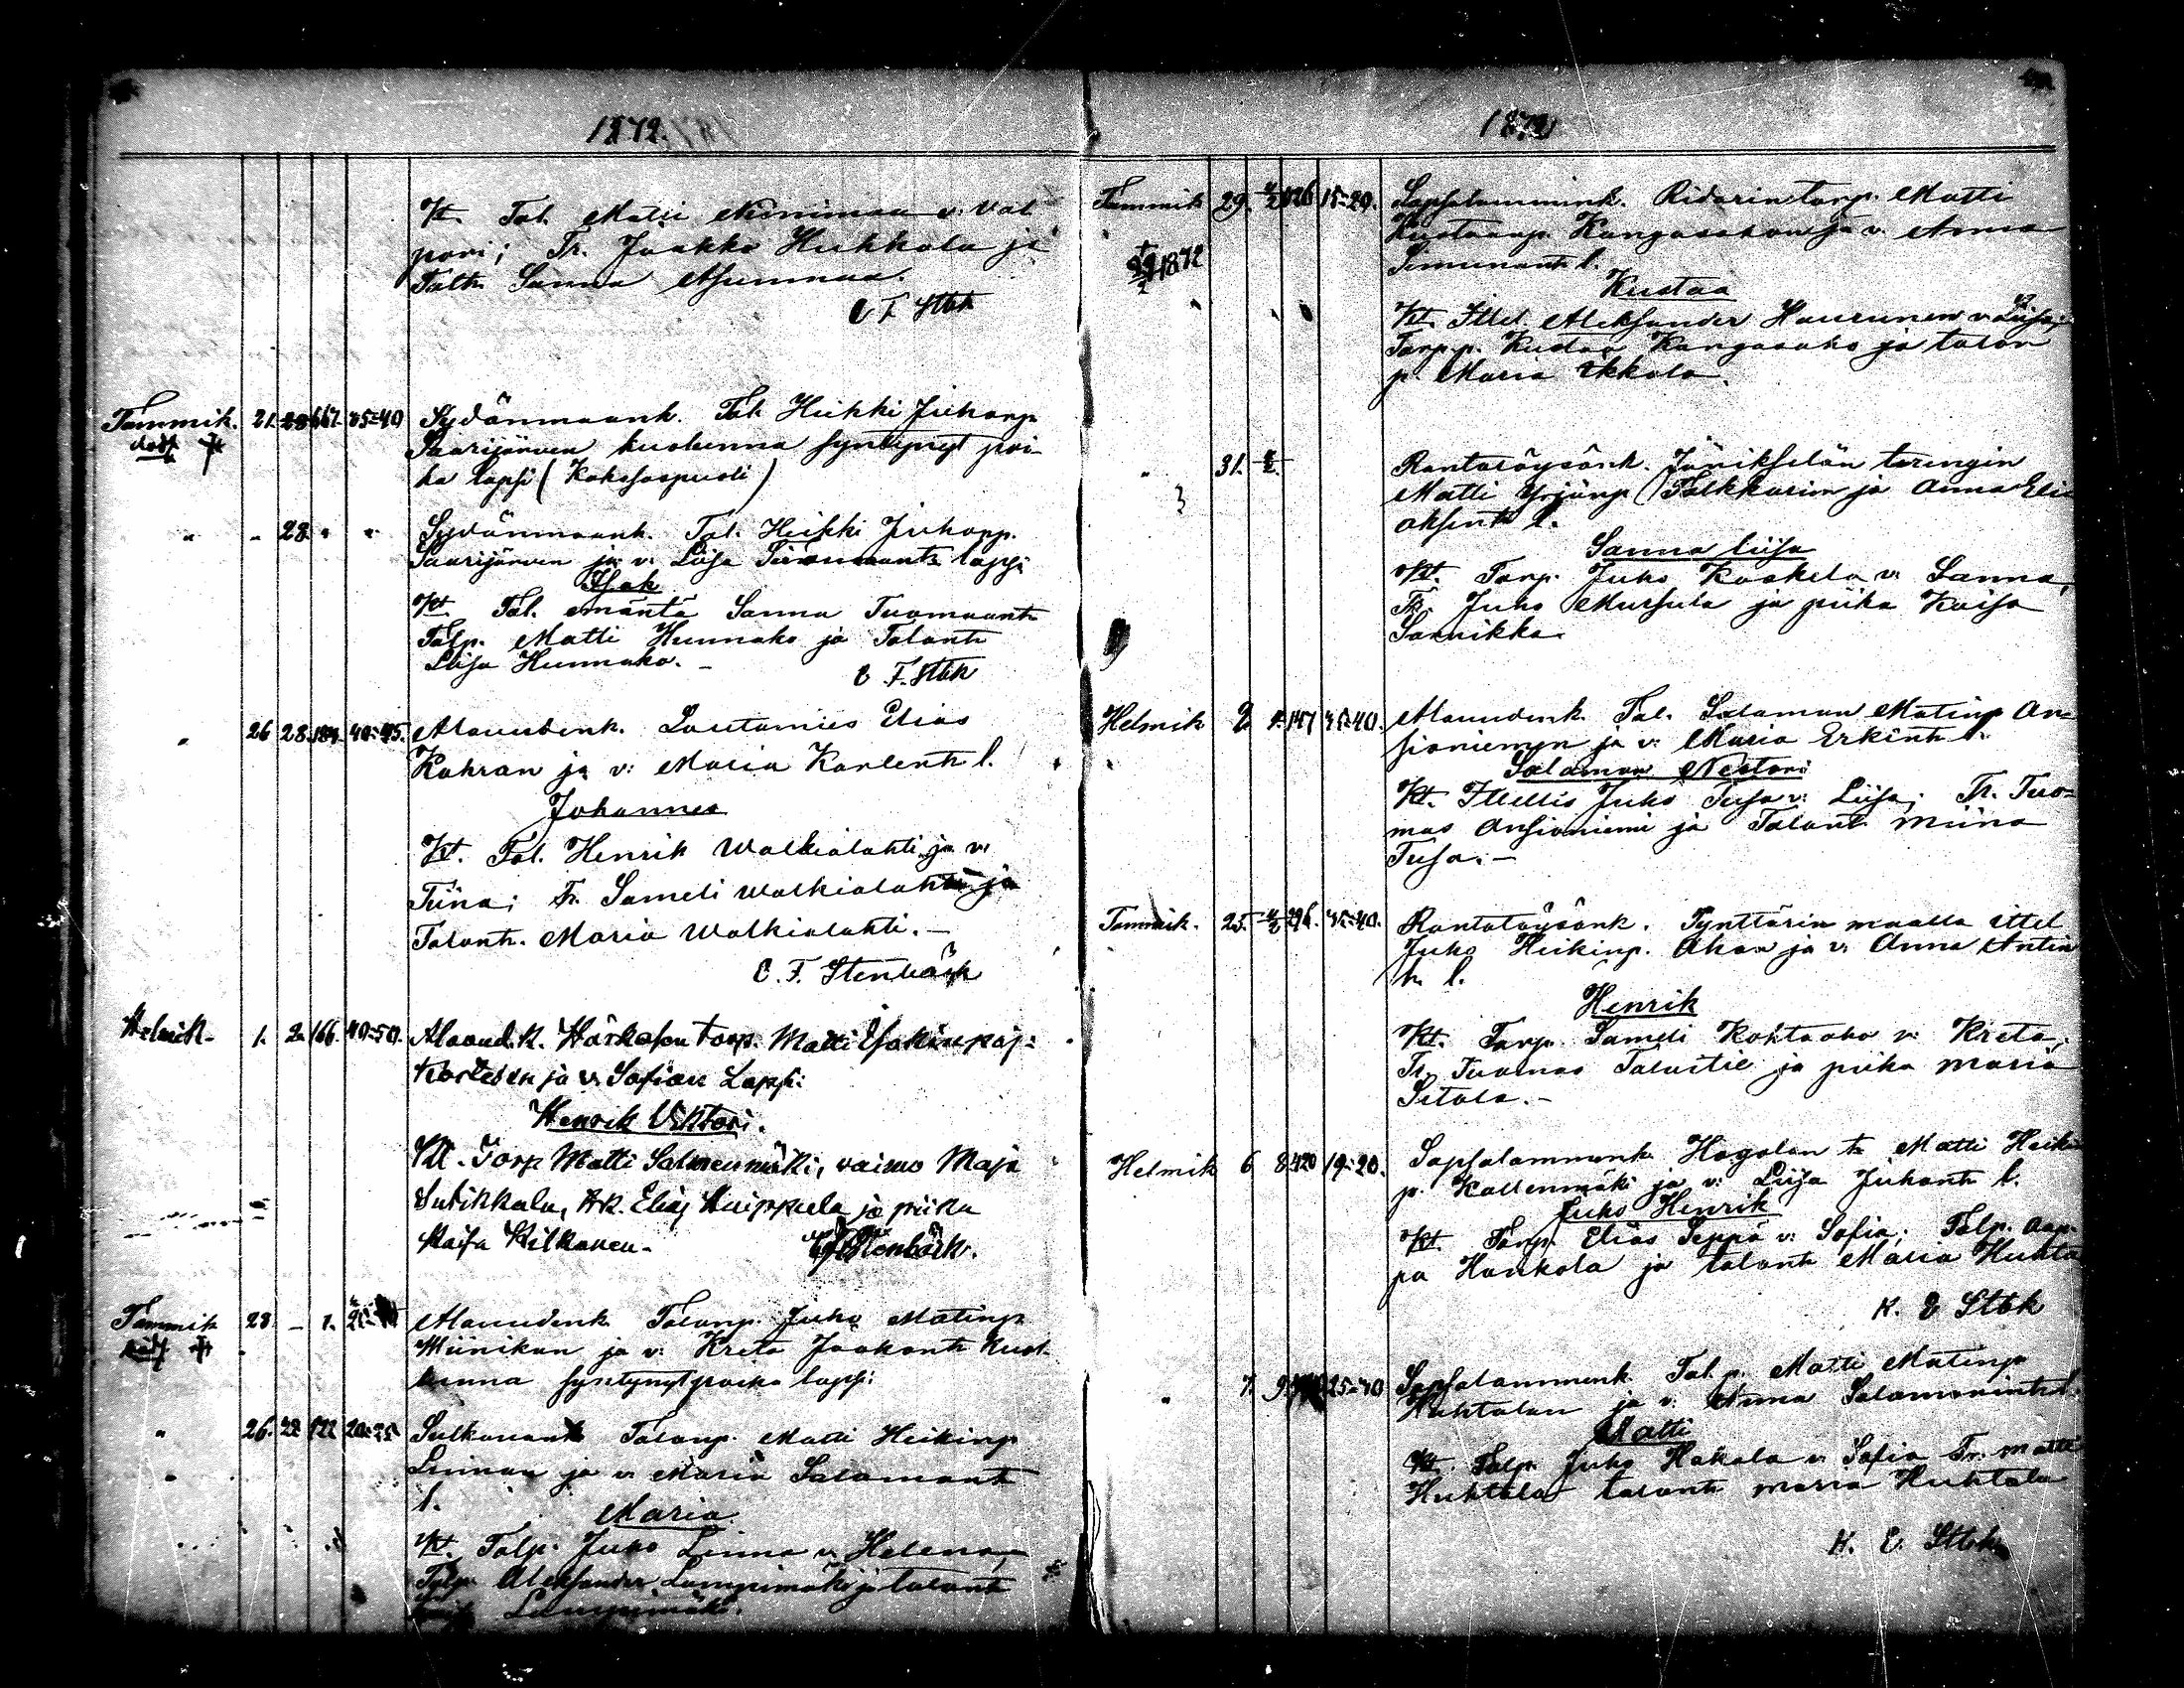 1872.
Kt. Tal. Matti Niinimaa v. Val
pori; Tr. Jaakko Huhkala ja
Taltr. Sanna Asunmaa.
C F Stbk
Tammik. 21. 28 667. 35-40 Sydänmaank. Tal. Heikki Juhonp.
Saarijärven kuolenna syntynyt poi-
ka lapsi (Kaksospuoli)
" - 28. " " Sydänmaank. Tal. Heikki Juhonp.
Saarijärven ja v: Liisa Tuomaantr. lapsi
Isak
Kt. Tal. emäntä Sanna Tuomaantr
Talp. Matti Hunnako ja Talontr
Liisa Hunnako. -
C F. Stbk
" 26 28. 184. 40-45. Alavudenk. Lautamies Elias
Kahran ja v: Maria Karlentr l.
Johannes
Kt. Tal. Henrik Walkialahti ja v:
Tiina; Tr. Sameli Walkialahti ja
Talontr. Maria Walkialahti. -
C. F. Stenbäck
Helmik. 1. 2. 166. 40-50. Alavud. k. Härkösen torp. Matti Esakinpoj:
ja v. Sofian Lapsi:
Henrik Vihtori.
Kt. Torp Matti Salmenmäki, vaimo Maja
Sulikkala, Rk. Elias Kuippula ja piika
Kaisa Kilkanen.
Stenbäck.
Tammik 28. - 1. Alavudenk Talonp. Juho Matinp
Miinikan ja v: Kreta Jaakontr kuol-
lenna syntynyt poika lapsi:
" 26. 28 122 20-25 Sulkavank Talonp. Matti Heikinp
Linnan ja v: Maria Salomontr
l.
Maria
Kt. Talp. Juho Linna v. Helena,
Talp. Aleksander Lampimäki ja talontr
Lampimäki.
1872
Tammik 29. 4/2 926 15-20. Sapsalammink. Ridarin torp. Matti
Kustaanp. Kangasahon ja v: Anna
Simunantr l.
1872
Kustaa
Kt. Ittel. Aleksander Haurunen v: Liisa;
Torp.p. Kustaa Kangasaho ja talon
p. Maria Ekkala.
" 31. Rantatöysänk. Jänikselän toringin
Matti Yrjänp. Talkkarin ja Anna Eli-
aksentr l.
Sanna Liisa
Kt. Torp. Juho Koskela v: Sanna,
Tr. Juho Mursula ja piika Kaisa
Sarnikka.
Helmik 2 4. 147 35-40. Alavudenk. Tal. Salamon Matinp An-
sioniemen ja v: Maria Erkintr l.
Salamon Nestori
Kt. Ittellis Juho Tusa v: Liisa; Tr. Tuo-
mas Ansioniemi ja Talontr. Miina
Tusa. -
Tammik. 25. 4/2 296. 35-40. Rantatöysänk. Tynttärin maalla ittel
Juho Heikinp. Ahon ja v: Anna Antin
tr. l.
Henrik
Kt. Torp. Sameli Kohtaoho v: Kreta;
Tr. Tuomas Talustie ja piika Maria
Setala. -
Helmik 6 8 420 19-20. Sapsalammenk Hagolan tr. Matti Heik
p. Kallenmäki ja v: Liisa Juhantr l.
Juho Henrik
Kt. Torp. Elias Seppä v: Sofia; Talp. Aap-
pa Hankola ja talontr Maria Huhta
K. E Stbk
" 7. 9. 35-40 Sapsalammenk. Tal. p. Matti Matinp
Huhtalan ja v: Anna Salomonintr l.
Matti
Kt. Talp. Juho Hakala v: Sofia Tr. Matti
Huhtala talontr Maria Huhtala
K. E. Stbk